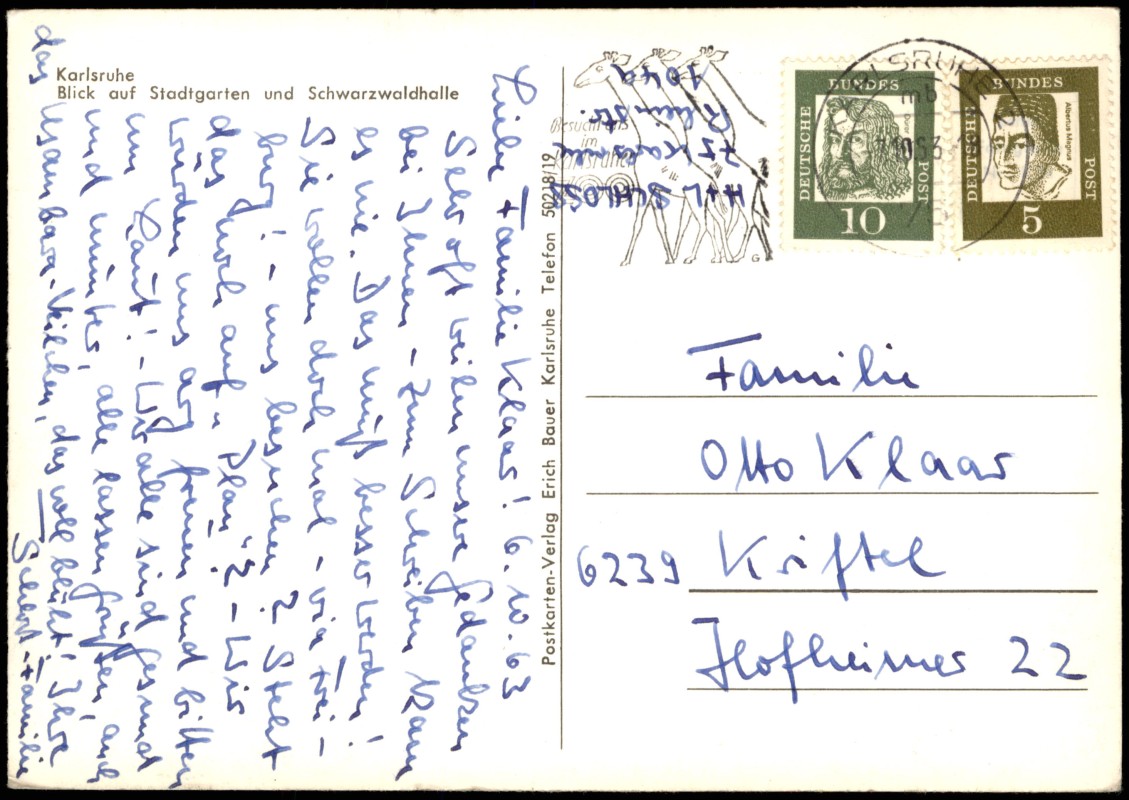 Karlsruhe
Blick auf Stadtgarten und Schwarzwaldhalle
Liebe Familie Klaar! 6.10.63
Sehr oft weilen unsere Gedanken
bei Ihnen – zum Schreiben kam
es nie. Das muß besser werden!
Sie wollen doch mal – via Frei-
burg! – uns besuchen? Steht
das noch auf „Plan“? – Wir
würden uns arg freuen und bitten
um Laut! – Wir alle sind gesund
und munter, alle lassen grüßen, auch
das Usambara-Veilchen, das voll blüht! Ihre
Schloß-Familie
Postkarten-Verlag Erich Bauer Karlsruhe Telefon 50218/19
H+L SCHLOSS
75 Karlsruhe
Rheinstr.
104a
Besucht uns
im
Karlsruher
KARLSRUHE
mb
DEUTSCHE
BUNDES
POST
10
DEUTSCHE
BUNDES
POST
Albertus Magnus
5
G
Familie
Otto Klaar
6239 Kriftel
Hofheimer 22